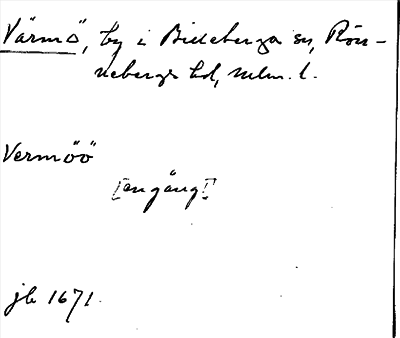 Värmö, by i Billeberga sn, Rön-
nebergs hd, Mlm. l.
Vermöö
[en gång]
jb 1671.